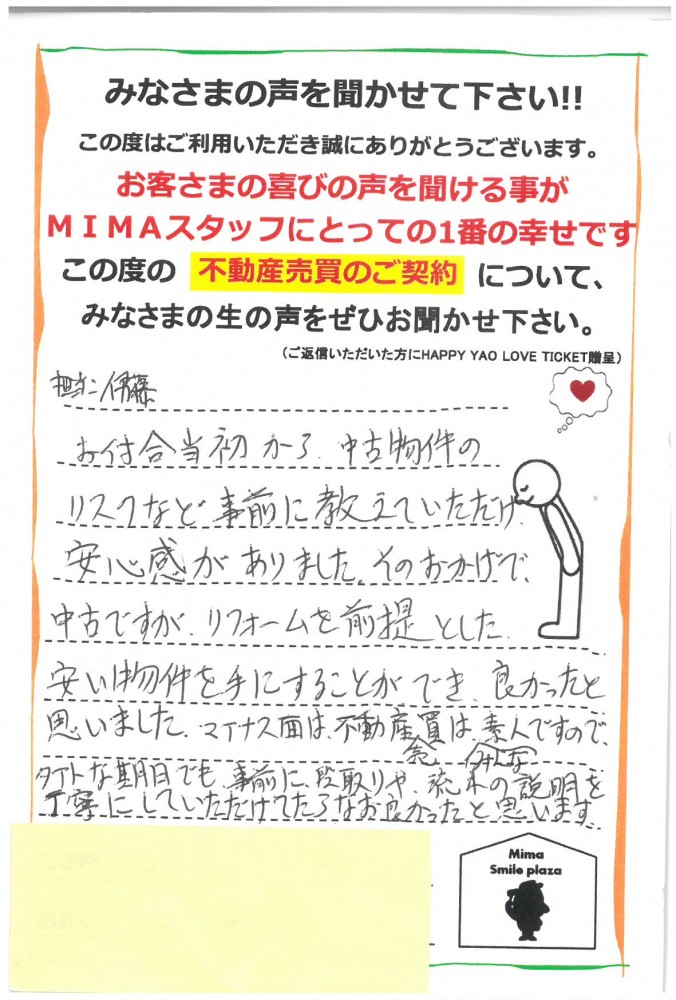 みなさまの声を聞かせて下さい!!
この度はご利用いただき誠にありがとうございます。
お客さまの喜びの声を聞ける事が
ＭＩＭＡスタッフにとっての1番の幸せです
この度の 不動産売買のご契約 について、
みなさまの生の声をぜひお聞かせ下さい。
（ご返信いただいた方にHAPPY YAO LOVE TICKET贈呈）
担当 伊藤
お付合当初から、中古物件の
リスクなど事前に教えていただけ、
安心感がありました。そのおかげで、
中古ですが、リフォームを前提とした、
安い物件を手にすることができ、良かったと
思いました。マイナス面は、不動産売買は、みんな素人ですので、
タイトな期日でも、事前に段取りや、流れの説明を
丁寧にしていただけてたらなお良かったと思います。
Mima
Smile plaza